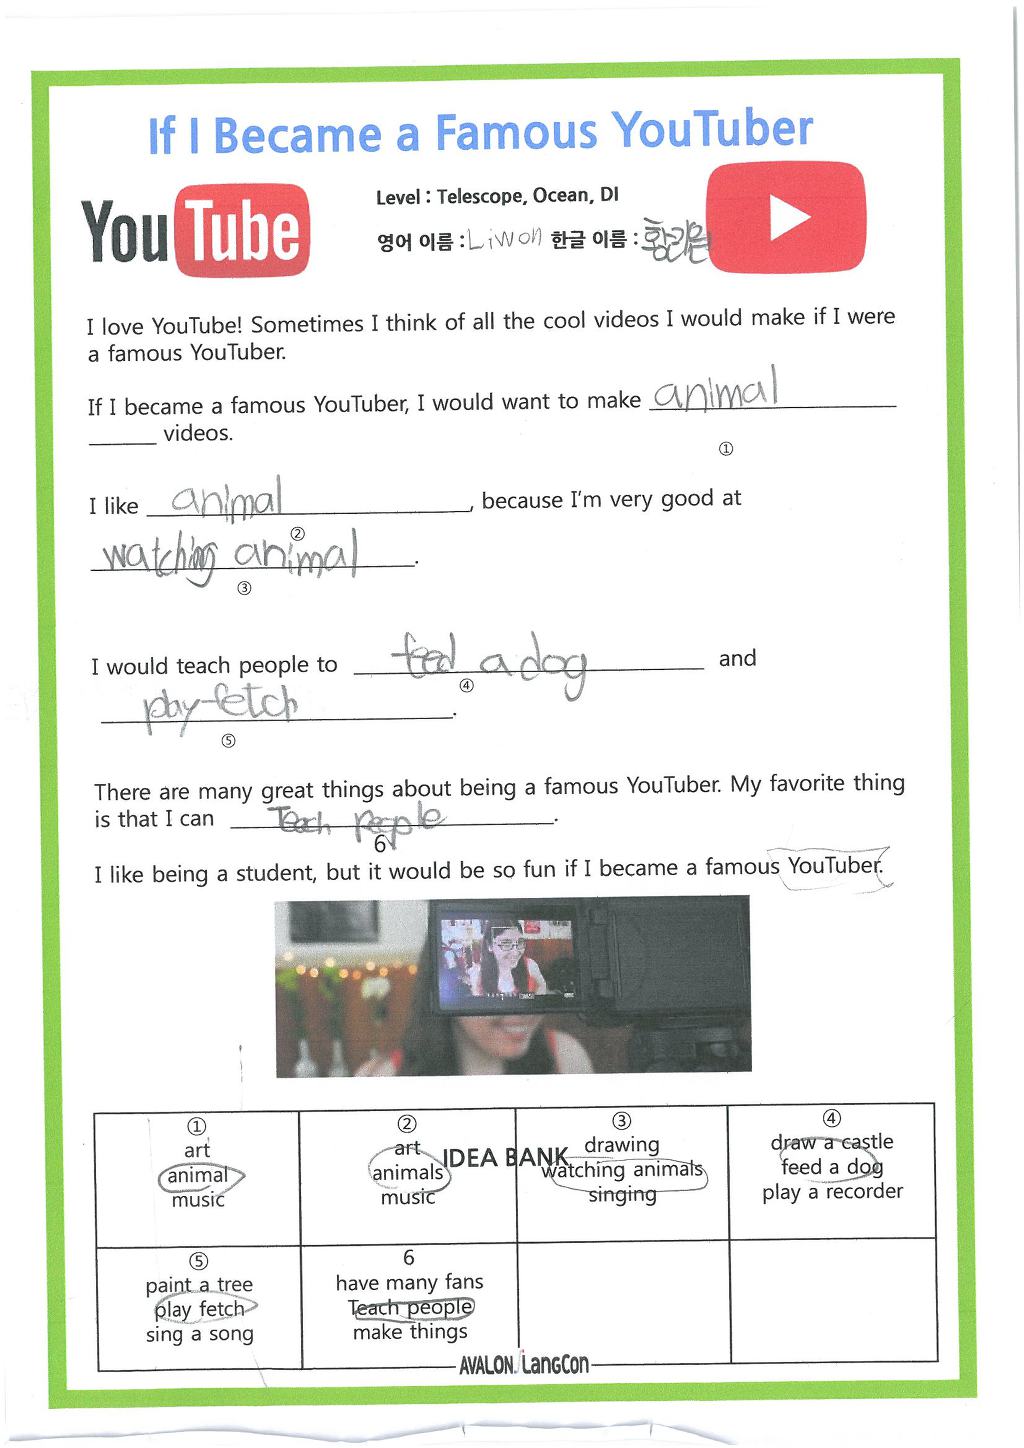 If I Became a Famous YouTuber
YouTube
Level : Telescope, Ocean, DI
영어 이름 : Liwon 한글 이름 : 황리원
I love YouTube! Sometimes I think of all the cool videos I would make if I were
a famous YouTuber.
If I became a famous YouTuber, I would want to make animal
videos.
①
I like animal, because I'm very good at
②
watching animal.
③
I would teach people to feed a dog and
④
play fetch.
⑤
There are many great things about being a famous YouTuber. My favorite thing
is that I can Teach people.
6
I like being a student, but it would be so fun if I became a famous YouTuber.
IDEA BANK
①
art
animal
music
②
art
animals
music
③
drawing
watching animals
singing
④
draw a castle
feed a dog
play a recorder
⑤
paint a tree
play fetch
sing a song
6
have many fans
Teach people
make things
AVALON LangCon